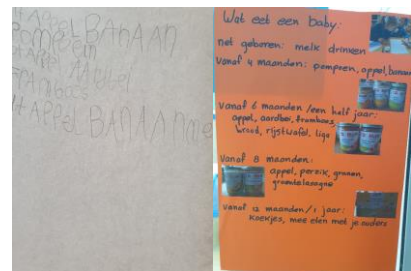 Appel BANAAN
pompoen
Appel
Appel BANAAN
Wat eet een baby:
net geboren: melk drinken
Vanaf 4 maanden: pompoen, appel, banaan
Vanaf 6 maanden /een half jaar:
appel, aardbei, framboos,
brood, rijstwafel, liga
Vanaf 8 maanden:
appel, perzik, granen,
groentelasagne
Vanaf 12 maanden/1 jaar:
koekjes, mee eten met je ouders